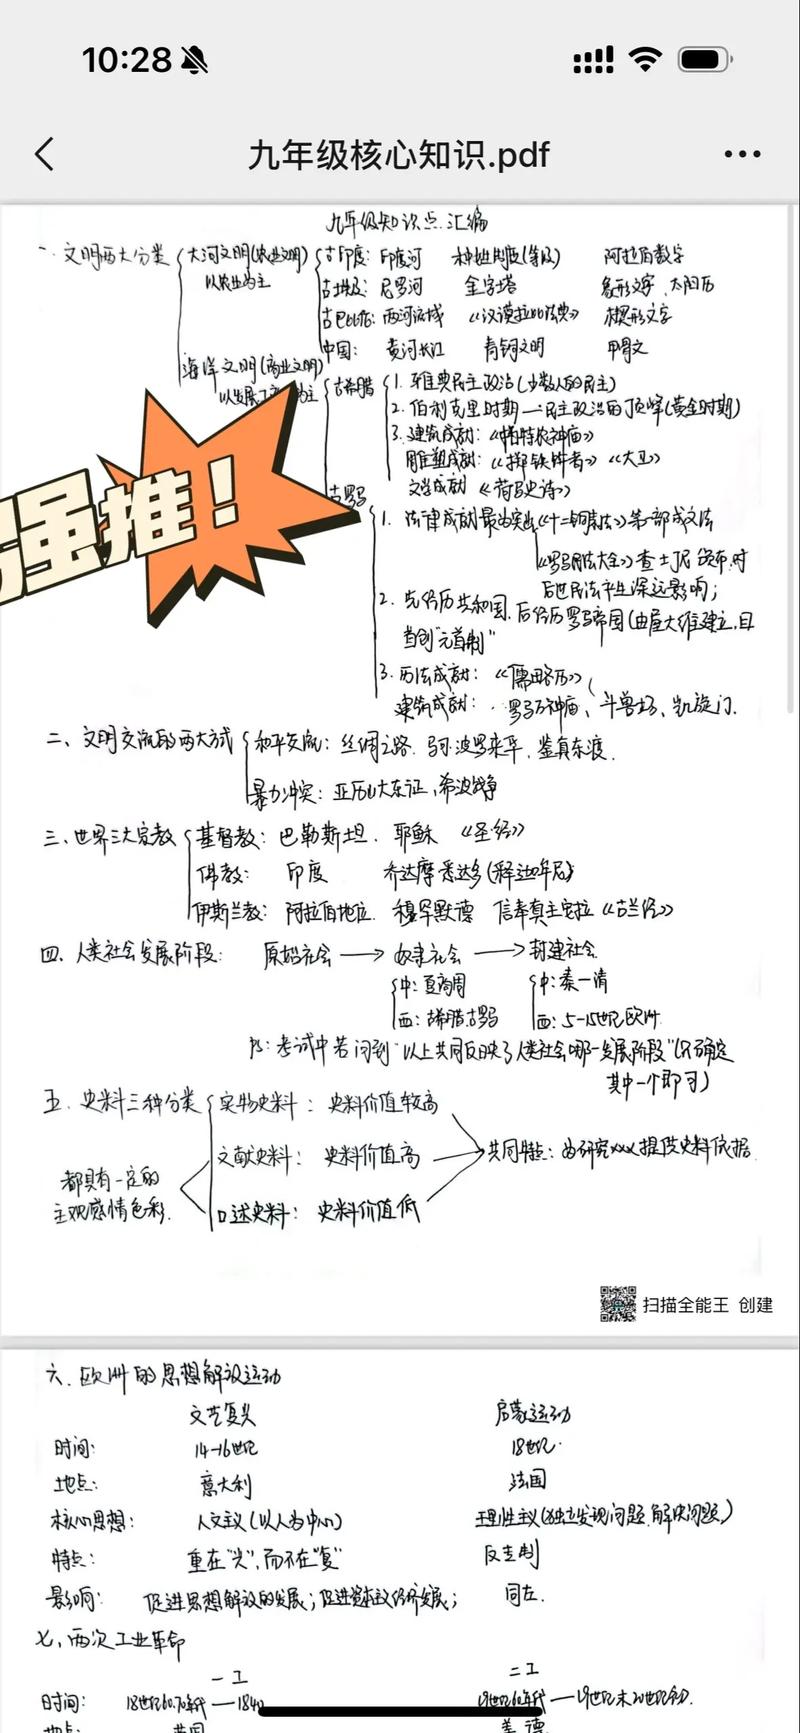 10:28
九年级核心知识.pdf
九年级知识点汇编
一. 文明两大分类
大河文明(农业文明)
以农业为主
古印度: 印度河 种姓制度(等级) 阿拉伯数字
古埃及: 尼罗河 金字塔 象形文字、太阳历
古巴比伦: 两河流域 《汉谟拉比法典》 楔形文字
中国: 黄河长江 青铜文明 甲骨文
海洋文明(商业文明)
以发展工商业为主
古希腊
1. 雅典民主政治(少数人的民主)
2. 伯利克里时期—民主政治的顶峰(黄金时期)
3. 建筑成就: 《帕特农神庙》
雕塑成就: 《掷铁饼者》《大卫》
文学成就《荷马史诗》
强推!
古罗马
1. 法律成就最为突出《十二铜表法》第一部成文法
《罗马民法大全》查士丁尼 颁布,对
后世民法产生深远影响;
2. 先经历共和国,后经历罗马帝国(由屋大维建立,且
首创"元首制"
3. 历法成就: 《儒略历》
建筑成就: 罗马万神庙、斗兽场、凯旋门.
二、文明交流的两大方式
和平交流: 丝绸之路、马可·波罗来华、鉴真东渡.
暴力冲突: 亚历山大东征、希波战争
三. 世界三大宗教
基督教: 巴勒斯坦. 耶稣 《圣经》
佛教: 印度 乔达摩·悉达多(释迦牟尼)
伊斯兰教: 阿拉伯地位. 穆罕默德 信奉真主安拉《古兰经》
四. 人类社会发展阶段: 原始社会 → 奴隶社会 → 封建社会
中: 夏商周 中: 秦—清
西: 古希腊.古罗马 西: 5-15世纪欧洲.
Ps: 考试中若问到"以上共同反映了人类社会哪一发展阶段"(只确定
其中一个即可)
五. 史料三种分类
实物史料: 史料价值较高
文献史料: 史料价值高
口述史料: 史料价值低
都具有一定的
主观感情色彩.
共同特点: 为研究xxx提供史料依据.
扫描全能王 创建
六. 欧洲的思想解放运动
文艺复兴 启蒙运动
时间: 14-16世纪 18世纪.
地点: 意大利 法国
核心思想: 人文主义(以人为中心) 理性主义(独立发现问题.解决问题)
特点: 重在"兴",而不在"复" 反专制
影响: 促进思想解放的发展; 促进资本主义经济发展; 同左.
七、两次工业革命
一工 二工
时间: 18世纪60.70年代 — 1840 19世纪60年代 — 19世纪末20世纪初.
地点: 英国 美 德